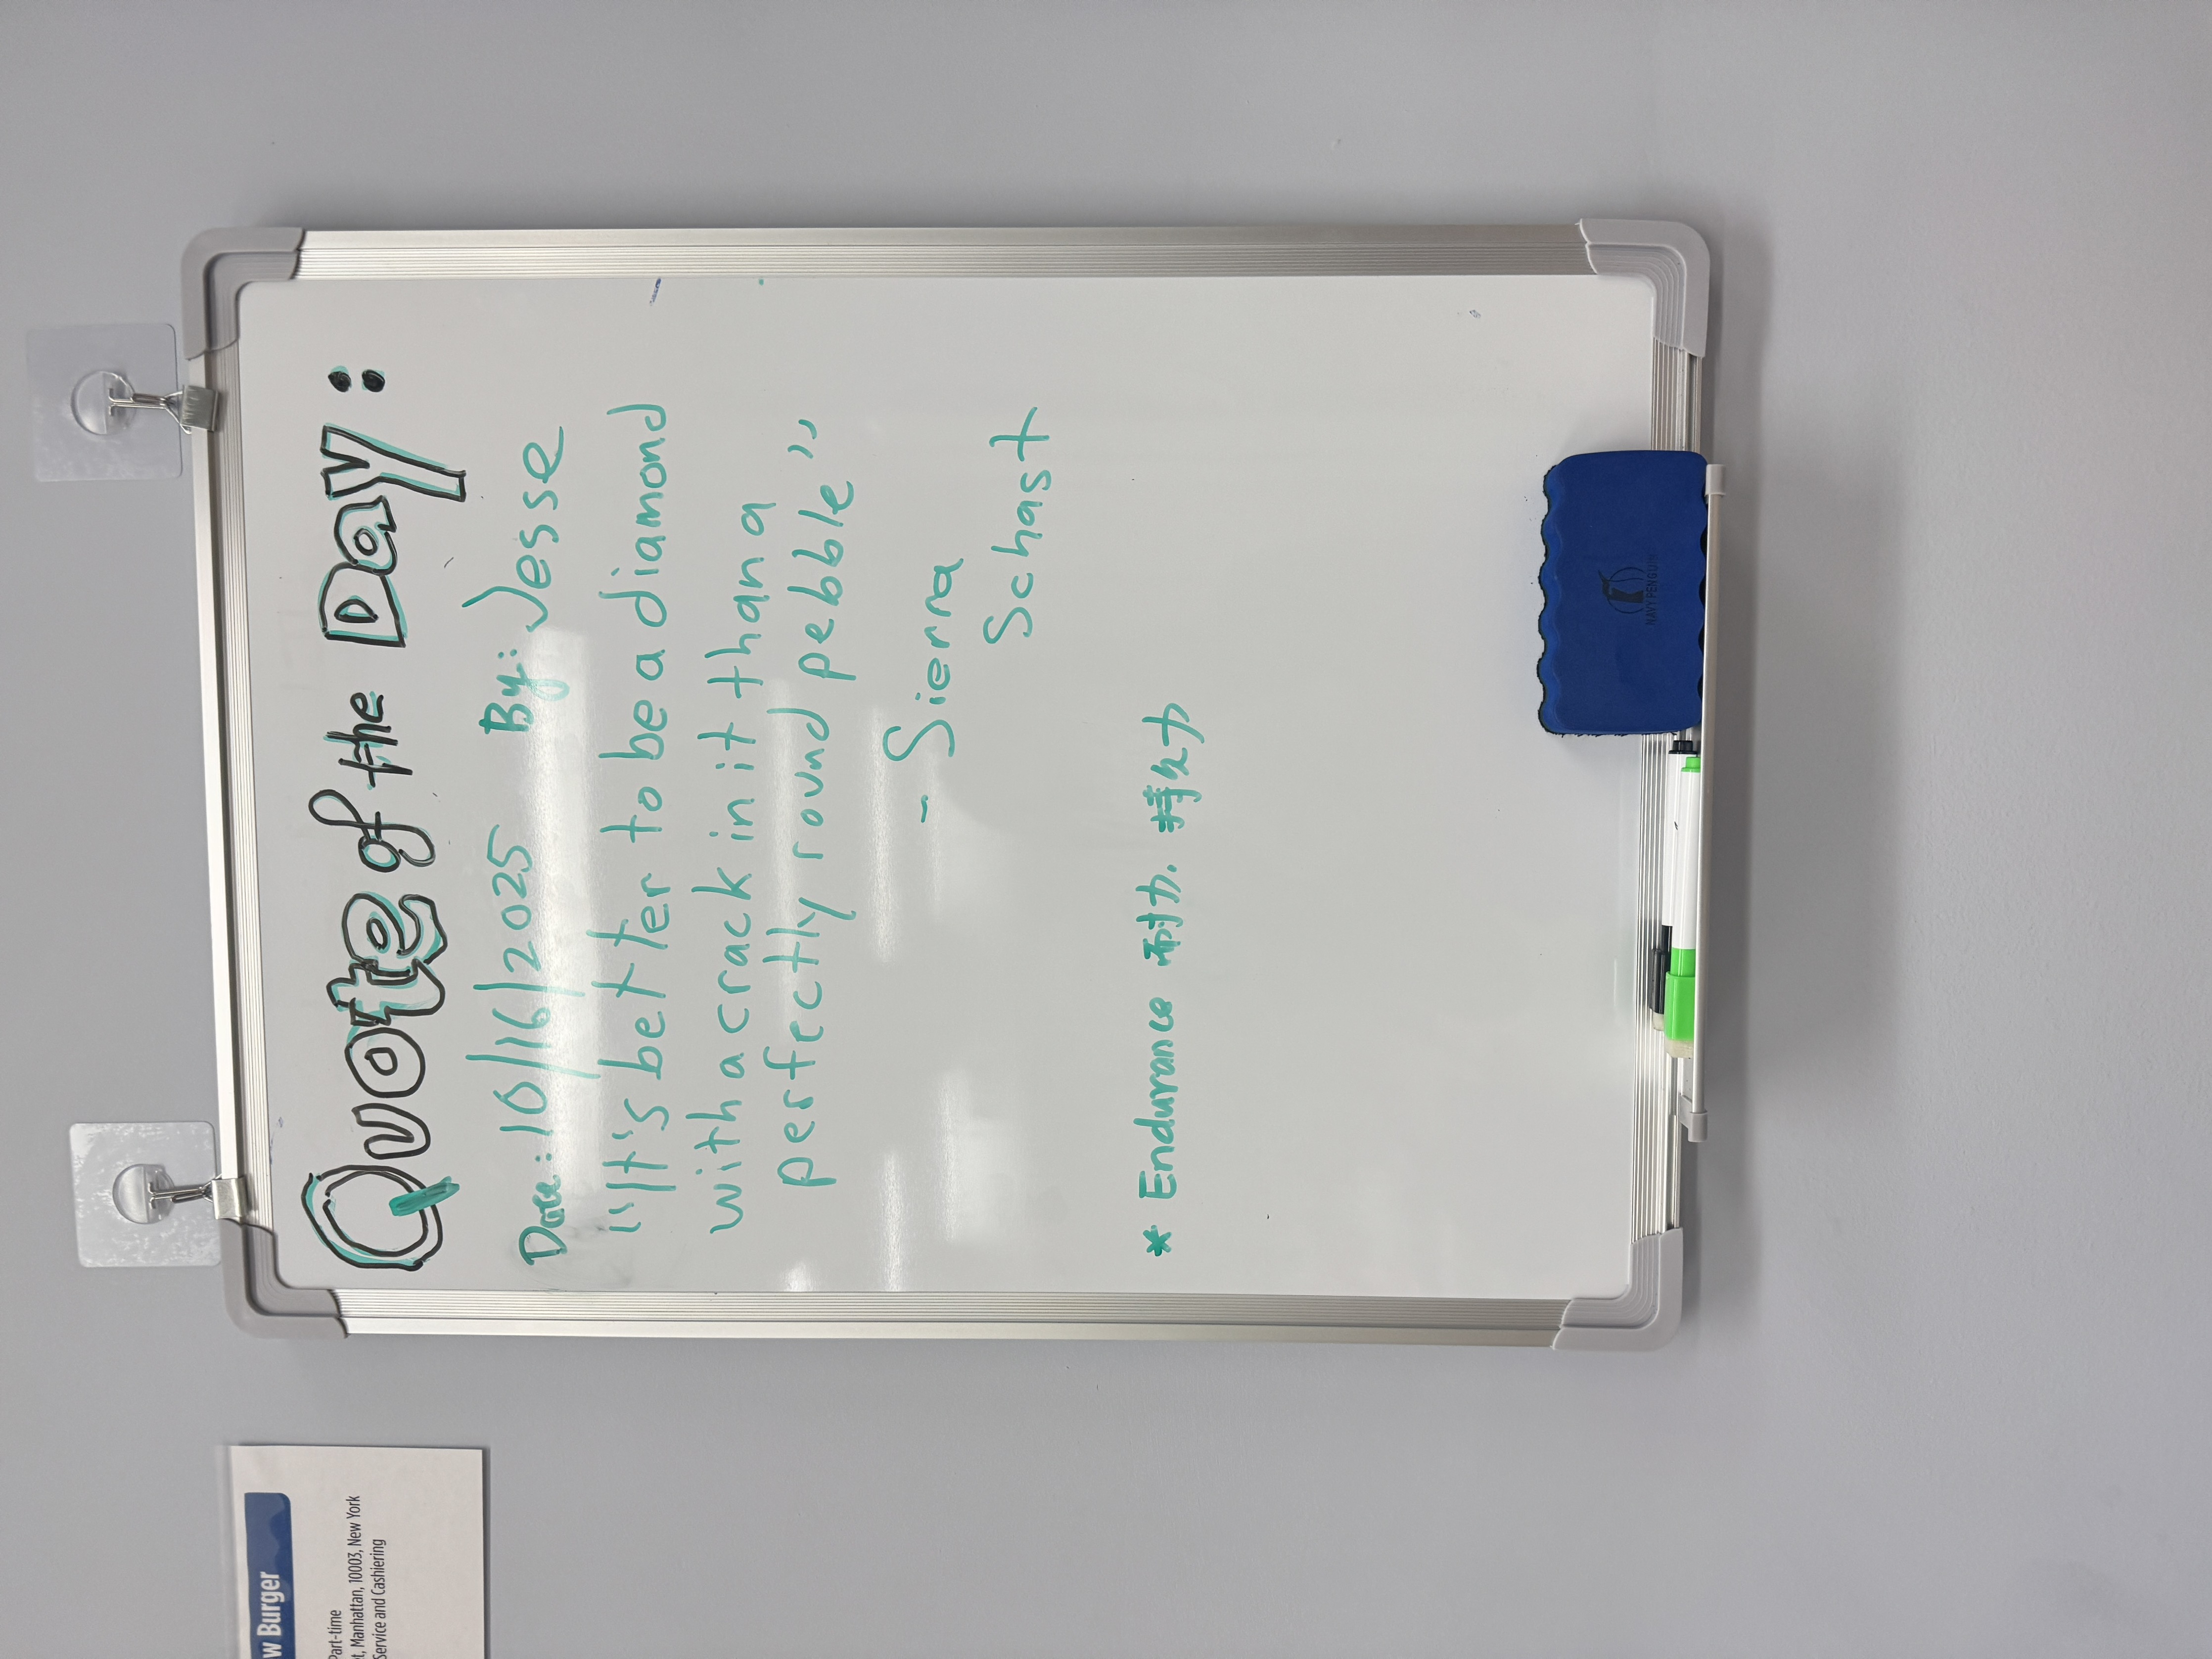 Quote of the Day:
Date: 10/16/2025 By: Jesse
"It's better to be a diamond
with a crack in it than a
perfectly round pebble"
- Sierra
Schast
* Endurance 耐力. 持久力
NAVY PENGUIN
w Burger
Part-time
t, Manhattan, 10003, New York
Service and Cashiering